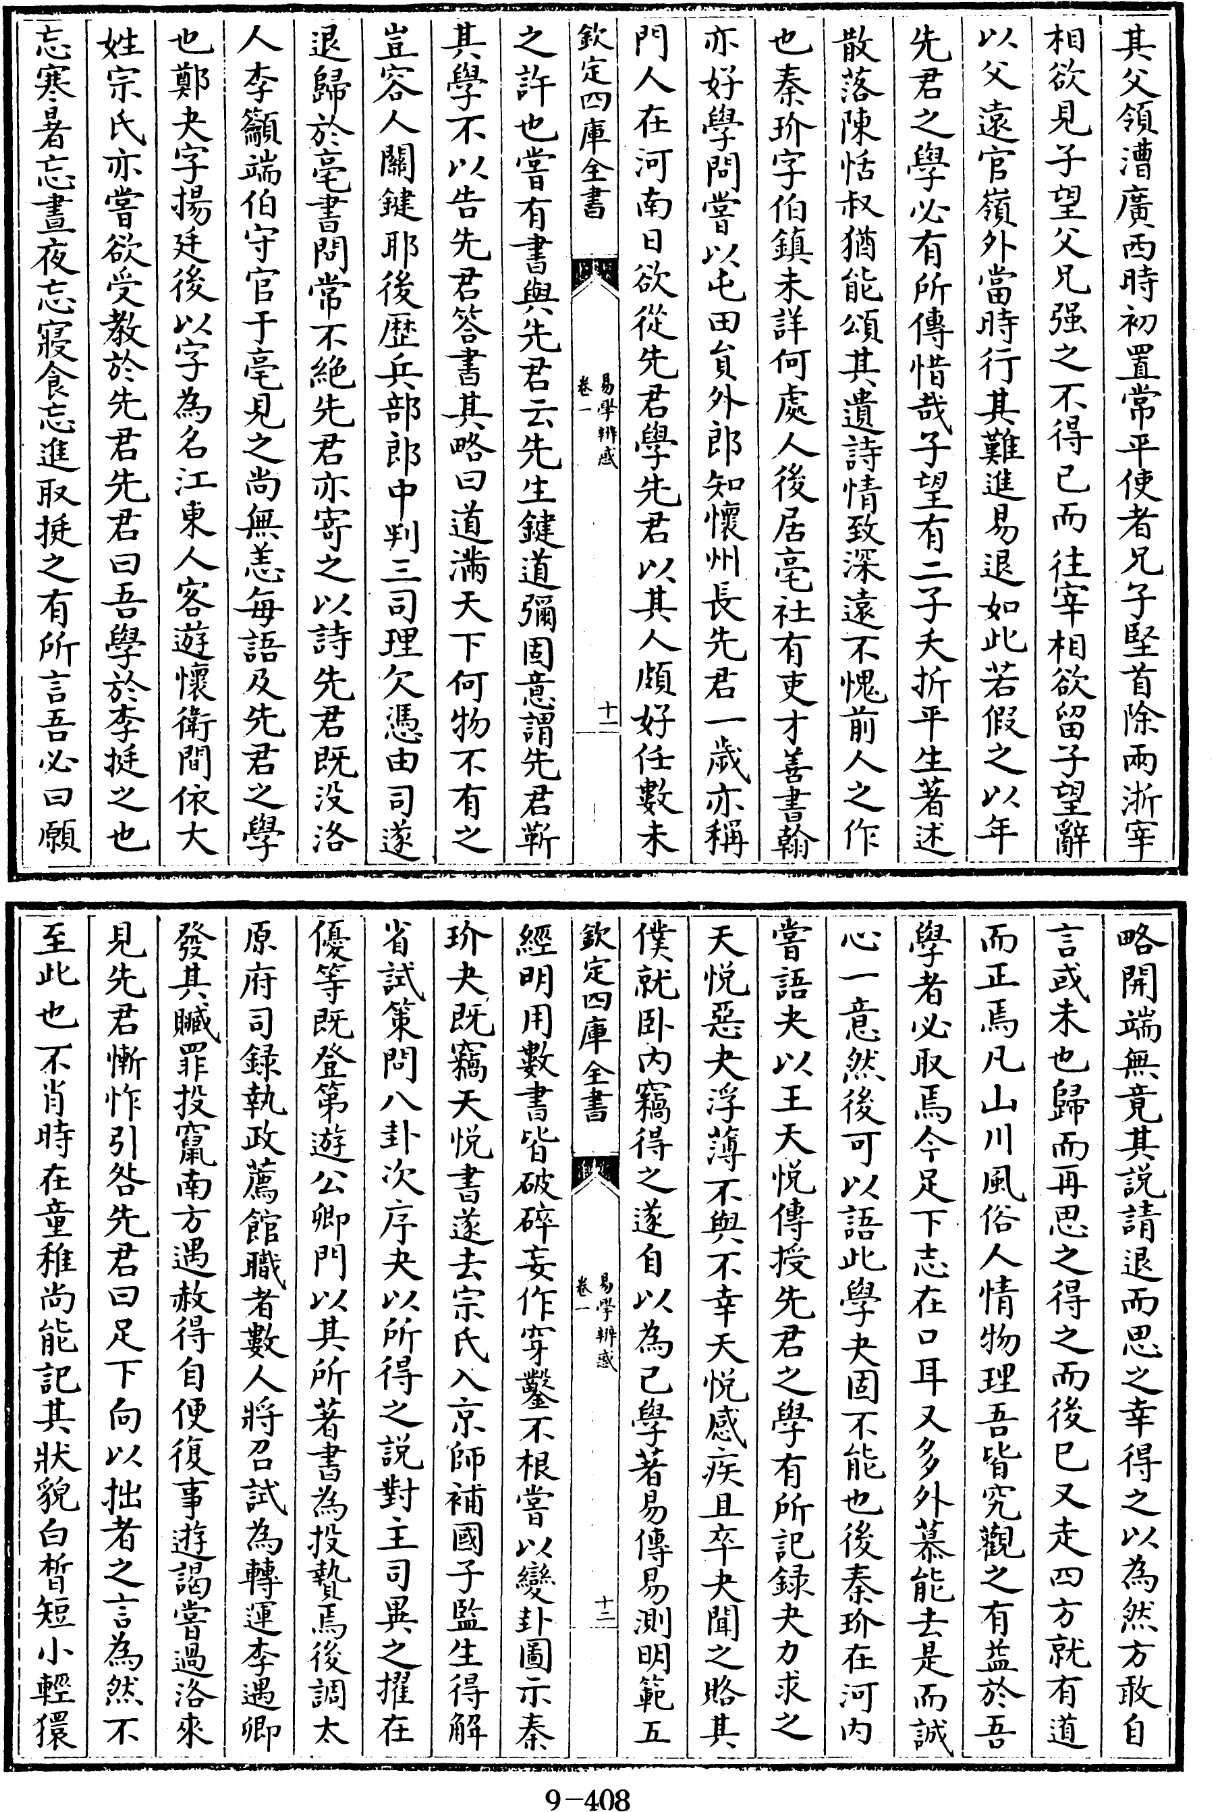 其父領漕廣西時初置常平使者兄子堅首除兩浙宰
相欲見子望父兄强之不得已而往宰相欲留子望辭
以父遠官嶺外當時行其難進易退如此若假之以年
先君之學必有所傳惜哉子望有二子夭折平生著述
散落陳恬叔猶能頌其遺詩情致深遠不愧前人之作
也秦玠字伯鎮未詳何處人後居亳社有吏才善書翰
亦好學問嘗以屯田貟外郎知懷州長先君一歲亦稱
門人在河南日欲從先君學先君以其人頗好任數未
欽定四庫全書
易學辨惑
卷一
十一
之許也嘗有書與先君云先生鍵道彌固意謂先君靳
其學不以告先君答書其略曰道滿天下何物不有之
豈容人關鍵耶後歷兵部郎中判三司理欠憑由司遂
退歸於亳書問常不絶先君亦寄之以詩先君既没洛
人李籲端伯守官于亳見之尚無恙每語及先君之學
也鄭夬字揚廷後以字為名江東人客遊懷衛間依大
姓宗氏亦嘗欲受教於先君先君曰吾學於李挺之也
忘寒暑忘晝夜忘寢食忘進取挺之有所言吾必曰願
略開端無竟其説請退而思之幸得之以為然方敢自
言或未也歸而再思之得之而後已又走四方就有道
而正焉凡山川風俗人情物理吾皆究觀之有益於吾
學者必取焉今足下志在口耳又多外慕能去是而誠
心一意然後可以語此學夬固不能也後秦玠在河内
嘗語夬以王天悦傳授先君之學有所記録夬力求之
天悦惡夬浮薄不與不幸天悦感疾且卒夬聞之賂其
僕就卧内竊得之遂自以為己學著易傳易測明範五
欽定四庫全書
易學辨惑
卷一
十二
經明用數書皆破碎妄作穿鑿不根嘗以變卦圖示秦
玠夬既竊天悦書遂去宗氏入京師補國子監生得解
省試策問八卦次序夬以所得之説對主司異之擢在
優等既登第遊公卿門以其所著書為投贄焉後調太
原府司録執政薦館職者數人將召試為轉運李遇卿
發其贓罪投竄南方遇赦得自便復事遊謁嘗過洛來
見先君慚怍引咎先君曰足下向以拙者之言為然不
至此也不肖時在童稚尚能記其狀貌白晳短小輕獧
9-408